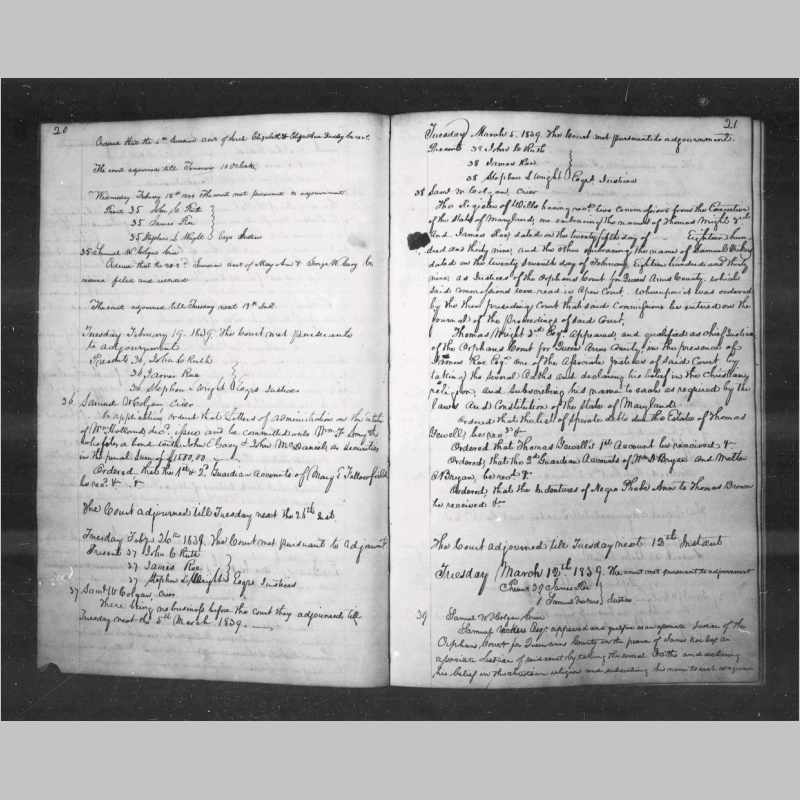 20
Ordered that the
The Court adjourned till Tomorrow 10 O'Clock
Wednesday Febuary 13th 1839 The Court met pursuant to adjournment
Present 35 John C Ruth
35 James Roe
35 Stephen L Wright Esqrs Justices
35 Samuel W Colgan Crier
Ordered that the Account of Mary Ann & George W be
received filed and
The Court adjourned till Tuesday next 19th Inst.
Tuesday February 19. 1839. The Court met pursuant
to adjournment
Present 36 John C Ruth
36 James Roe
36 Stephen L Wright Esqrs Justices
36 Samuel W Colgan Crier
On application ordered that Letters of administration on the Estate
of Wm Holland decd. issue and be committed unto Wm F. who
a bond with John E & John McDaniel as securities
in the penal sum of $1500.00
Ordered that the 1st & 2d Guardian Accounts of Mary E Tillowfield
be recd. &
The Court adjourned till Tuesday next the 26th Inst
Tuesday Feby 26th 1839. The Court met pursuant to adjournt
Present 37 John C Ruth
37 James Roe
37 Stephen L Wright Esqrs Justices
37 Saml W Colgan, Crier
There being no business before the Court they adjourned till
Tuesday next the 5th March 1839.
21
Tuesday March 5. 1839. The Court met pursuant to adjournment.
Present 38 John C Ruth
38 James Roe
38 Stephen L Wright Esqrs Justices
38 Saml W Colgan Crier
The Register of Wills having recd. two Commissions from the Executive
of the State of Maryland, one embracing the names of Thomas Wright 3rd
and James Roe, dated on the twenty fifth day of Eighteen hun
dred and thirty nine, and the other embracing the name of Samuel
dated on the twenty seventh day of February Eighteen hundred and thirty
nine, as Justices of the Orphans Court for Queen Anns County. which
said commissions were read in Open Court. whereupon it was ordered
by the then presiding Court that said Commissions be entered on the
Journal of the Proceedings of said Court,
Thomas Wright 3rd Esqr. Appeared, and qualified as Chief Justice
of the Orphans Court for Queen Anns County, in the presence of
James Roe Esqr. one of the Associate Justices of said Court, by
taking the several Oaths and declaring his belief in the Christian
religion, and subscribing his name to each as required by the
laws and Constitution of the State of Maryland.
Ordered that the list of Sperate debts due the Estate of Thomas
Sewell, be recd. &
Ordered that Thomas Sewell's 1st Account be received. &
Ordered, that the 2d Guardian Accounts of Wm D Bryan and
Bryan, be recd. &
Ordered, that the Indentures of Negro Phebe Ann to Thomas Brown
be received &c
The Court adjourned till Tuesday next 12th Instant
Tuesday March 12th 1839. The court met pursuant to adjournment
Present 39 James Roe
Samuel Justices
39 Samuel W Colgan Crier
Samuel Esqr appeared and qualified as an associate Justice of the
Orphans Court for Queen anns County in the presence of James Roe Esqr an
associate Justice of said court by taking the several Oaths and declaring
his belief in the christian religion and subscribing his name to each as required